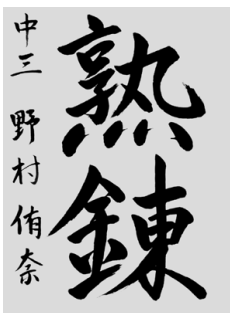 熟錬
中三 野村侑奈